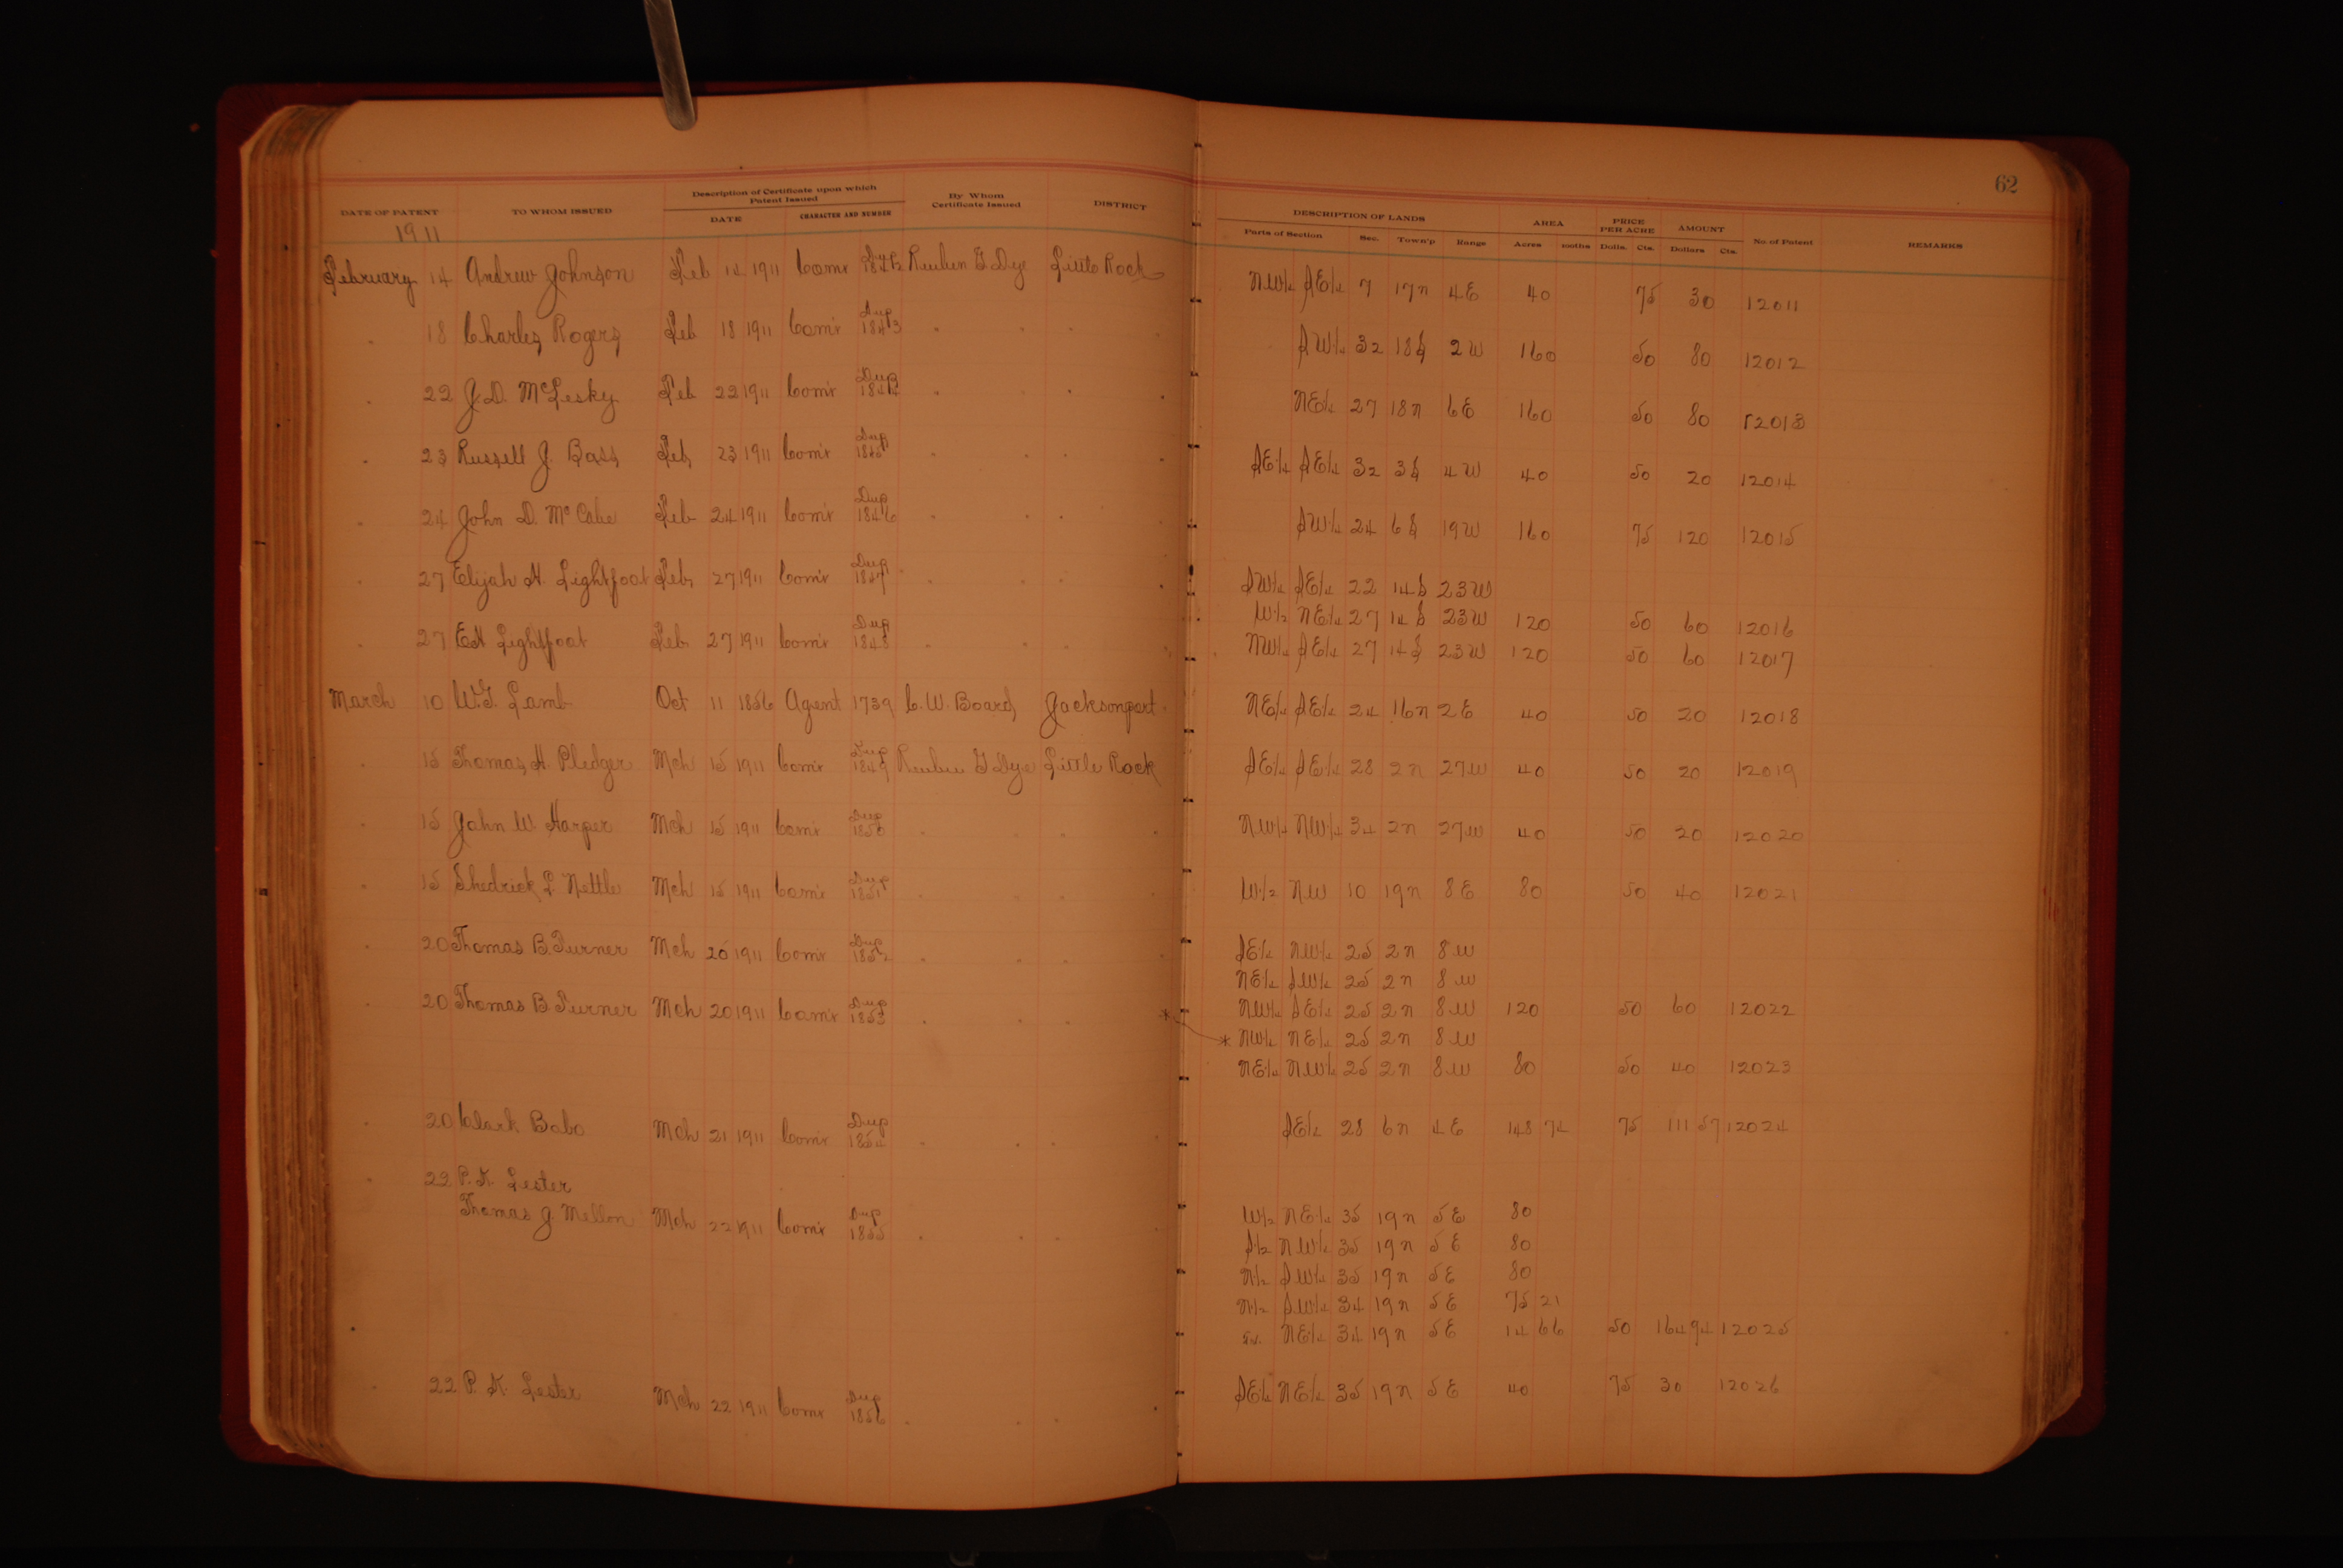 62
DATE OF PATENT TO WHOM ISSUED Description of Certificate upon which Patent Issued By Whom Certificate Issued DISTRICT DESCRIPTION OF LANDS AREA PRICE PER ACRE AMOUNT No. of Patent REMARKS
DATE CHARACTER AND NUMBER Parts of Section Sec. Town'p Range Acres 100ths Dolls. Cts. Dollars Cts.
1911
February 14 Andrew Johnson Feb 14 1911 Comr Reuben G Dye Little Rock NW¼ SE¼ 7 17N 4E 40 75 30 12011
" 18 Charles Rogers Feb 18 1911 Com'r Dup 1843 " " " SW¼ 32 18S 2W 160 50 80 12012
" 22 J.D. McLesky Feb 22 1911 Com'r Dup 1844 " " " NE¼ 27 18N 6E 160 50 80 12013
" 23 Russell J. Bass Feb 23 1911 Com'r Dup 1845 " " " SE¼ SE¼ 32 3S 4W 40 50 20 12014
" 24 John D. McCabe Feb 24 1911 Com'r Dup 1846 " " " SW¼ 24 6S 19W 160 75 120 12015
" 27 Elijah H. Lightfoot Feb 27 1911 Com'r Dup 1847 " " " SW¼ SE¼ 22 14S 23W
W½ NE¼ 27 14S 23W 120 50 60 12016
" 27 E H Lightfoot Feb 27 1911 Com'r Dup 1848 " " " NW¼ SE¼ 27 14S 23W 120 50 60 12017
March 10 W.G. Lamb Oct 11 1856 Agent 1739 C.W. Board Jacksonport NE¼ SE¼ 24 16N 2E 40 50 20 12018
" 15 Thomas H. Pledger Mch 15 1911 Comr Dup 1849 Reuben G Dye Little Rock SE¼ SE¼ 28 2N 27W 40 50 20 12019
" 15 John W. Harper Mch 15 1911 Comr Dup 1850 " " " NW¼ NW¼ 34 2N 27W 40 50 20 12020
" 15 Shedrick L Nettle Mch 15 1911 Comr Dup 1851 " " " W½ NW 10 19N 8E 80 50 40 12021
" 20 Thomas B. Turner Mch 20 1911 Comr Dup 1852 " " " SE¼ NW¼ 25 2N 8W
NE¼ SW¼ 25 2N 8W
" 20 Thomas B Turner Mch 20 1911 Com'r Dup 1853 " " " * NW¼ SE¼ 25 2N 8W 120 50 60 12022
* NW¼ NE¼ 25 2N 8W
NE¼ NW¼ 25 2N 8W 80 50 40 12023
" 20 Clark Babo Mch 21 1911 Com'r Dup 1854 " " " SE¼ 28 6N 4E 148 74 75 111 57 12024
" 22 P. K. Lester
Thomas J. Mellon Mch 22 1911 Com'r Dup 1855 " " " W½ NE¼ 35 19N 5E 80
S½ NW¼ 35 19N 5E 80
N½ SW¼ 35 19N 5E 80
N½ SW¼ 34 19N 5E 75 21
NE¼ 34 19N 5E 14 66 50 164 94 12025
" 22 P. K. Lester Mch 22 1911 Comr Dup 1856 " " " SE¼ NE¼ 35 19N 5E 40 75 30 12026